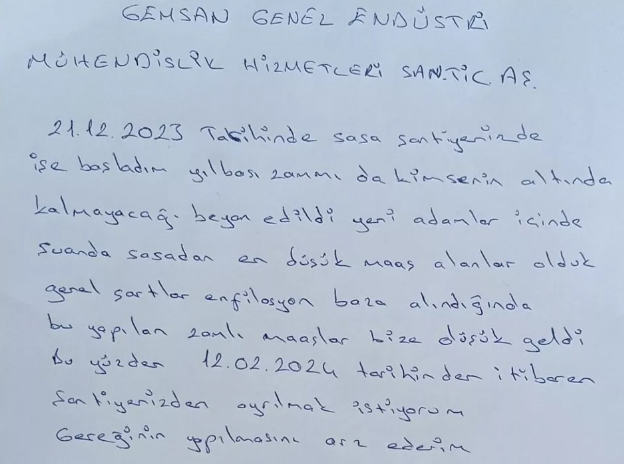 GEMSAN GENEL ENDÜSTRİ
MÜHENDİSLİK HİZMETLERİ SAN.TİC AŞ.
21.12.2023 Tarihinde sasa şantiyenizde
işe başladım yılbaşı zammı da kimsenin altında
kalmayacağı beyan edildi yeni adamlar içinde
şuanda sasadan en düşük maaş alanlar olduk
genel şartlar enfilosyon baza alındığında
bu yapılan zamlı maaşlar bize düşük geldi
bu yüzden 12.02.2024 tarihinden itibaren
şantiyenizden ayrılmak istiyorum
Gereğinin yapılmasını arz ederim